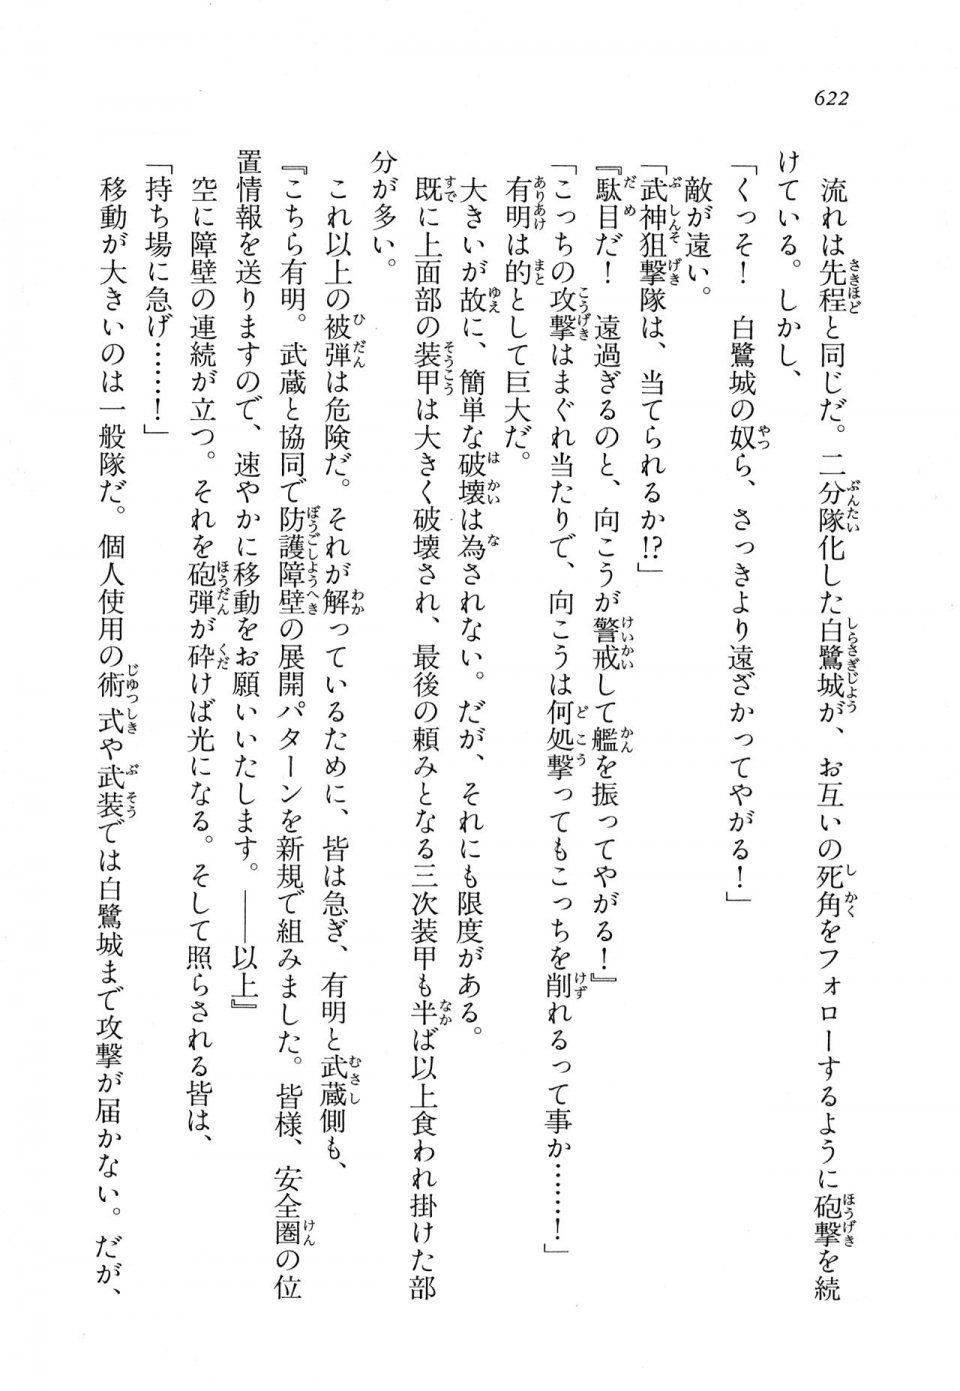 622
流れは先程と同じだ。二分隊化した白鷺城が、お互いの死角をフォローするように砲撃を続
けている。しかし、
「くっそ！　白鷺城の奴ら、さっきより遠ざかってやがる！」
敵が遠い。
「武神狙撃隊は、当てられるか!?」
『駄目だ！　遠過ぎるのと、向こうが警戒して艦を振ってやがる！』
「こっちの攻撃はまぐれ当たりで、向こうは何処撃ってもこっちを削れるって事か……！」
有明は的として巨大だ。
大きいが故に、簡単な破壊は為されない。だが、それにも限度がある。
既に上面部の装甲は大きく破壊され、最後の頼みとなる三次装甲も半ば以上食われ掛けた部
分が多い。
これ以上の被弾は危険だ。それが解っているために、皆は急ぎ、有明と武蔵側も、
『こちら有明。武蔵と協同で防護障壁の展開パターンを新規で組みました。皆様、安全圏の位
置情報を送りますので、速やかに移動をお願いいたします。――以上』
空に障壁の連続が立つ。それを砲弾が砕けば光になる。そして照らされる皆は、
「持ち場に急げ……！」
移動が大きいのは一般隊だ。個人使用の術式や武装では白鷺城まで攻撃が届かない。だが、